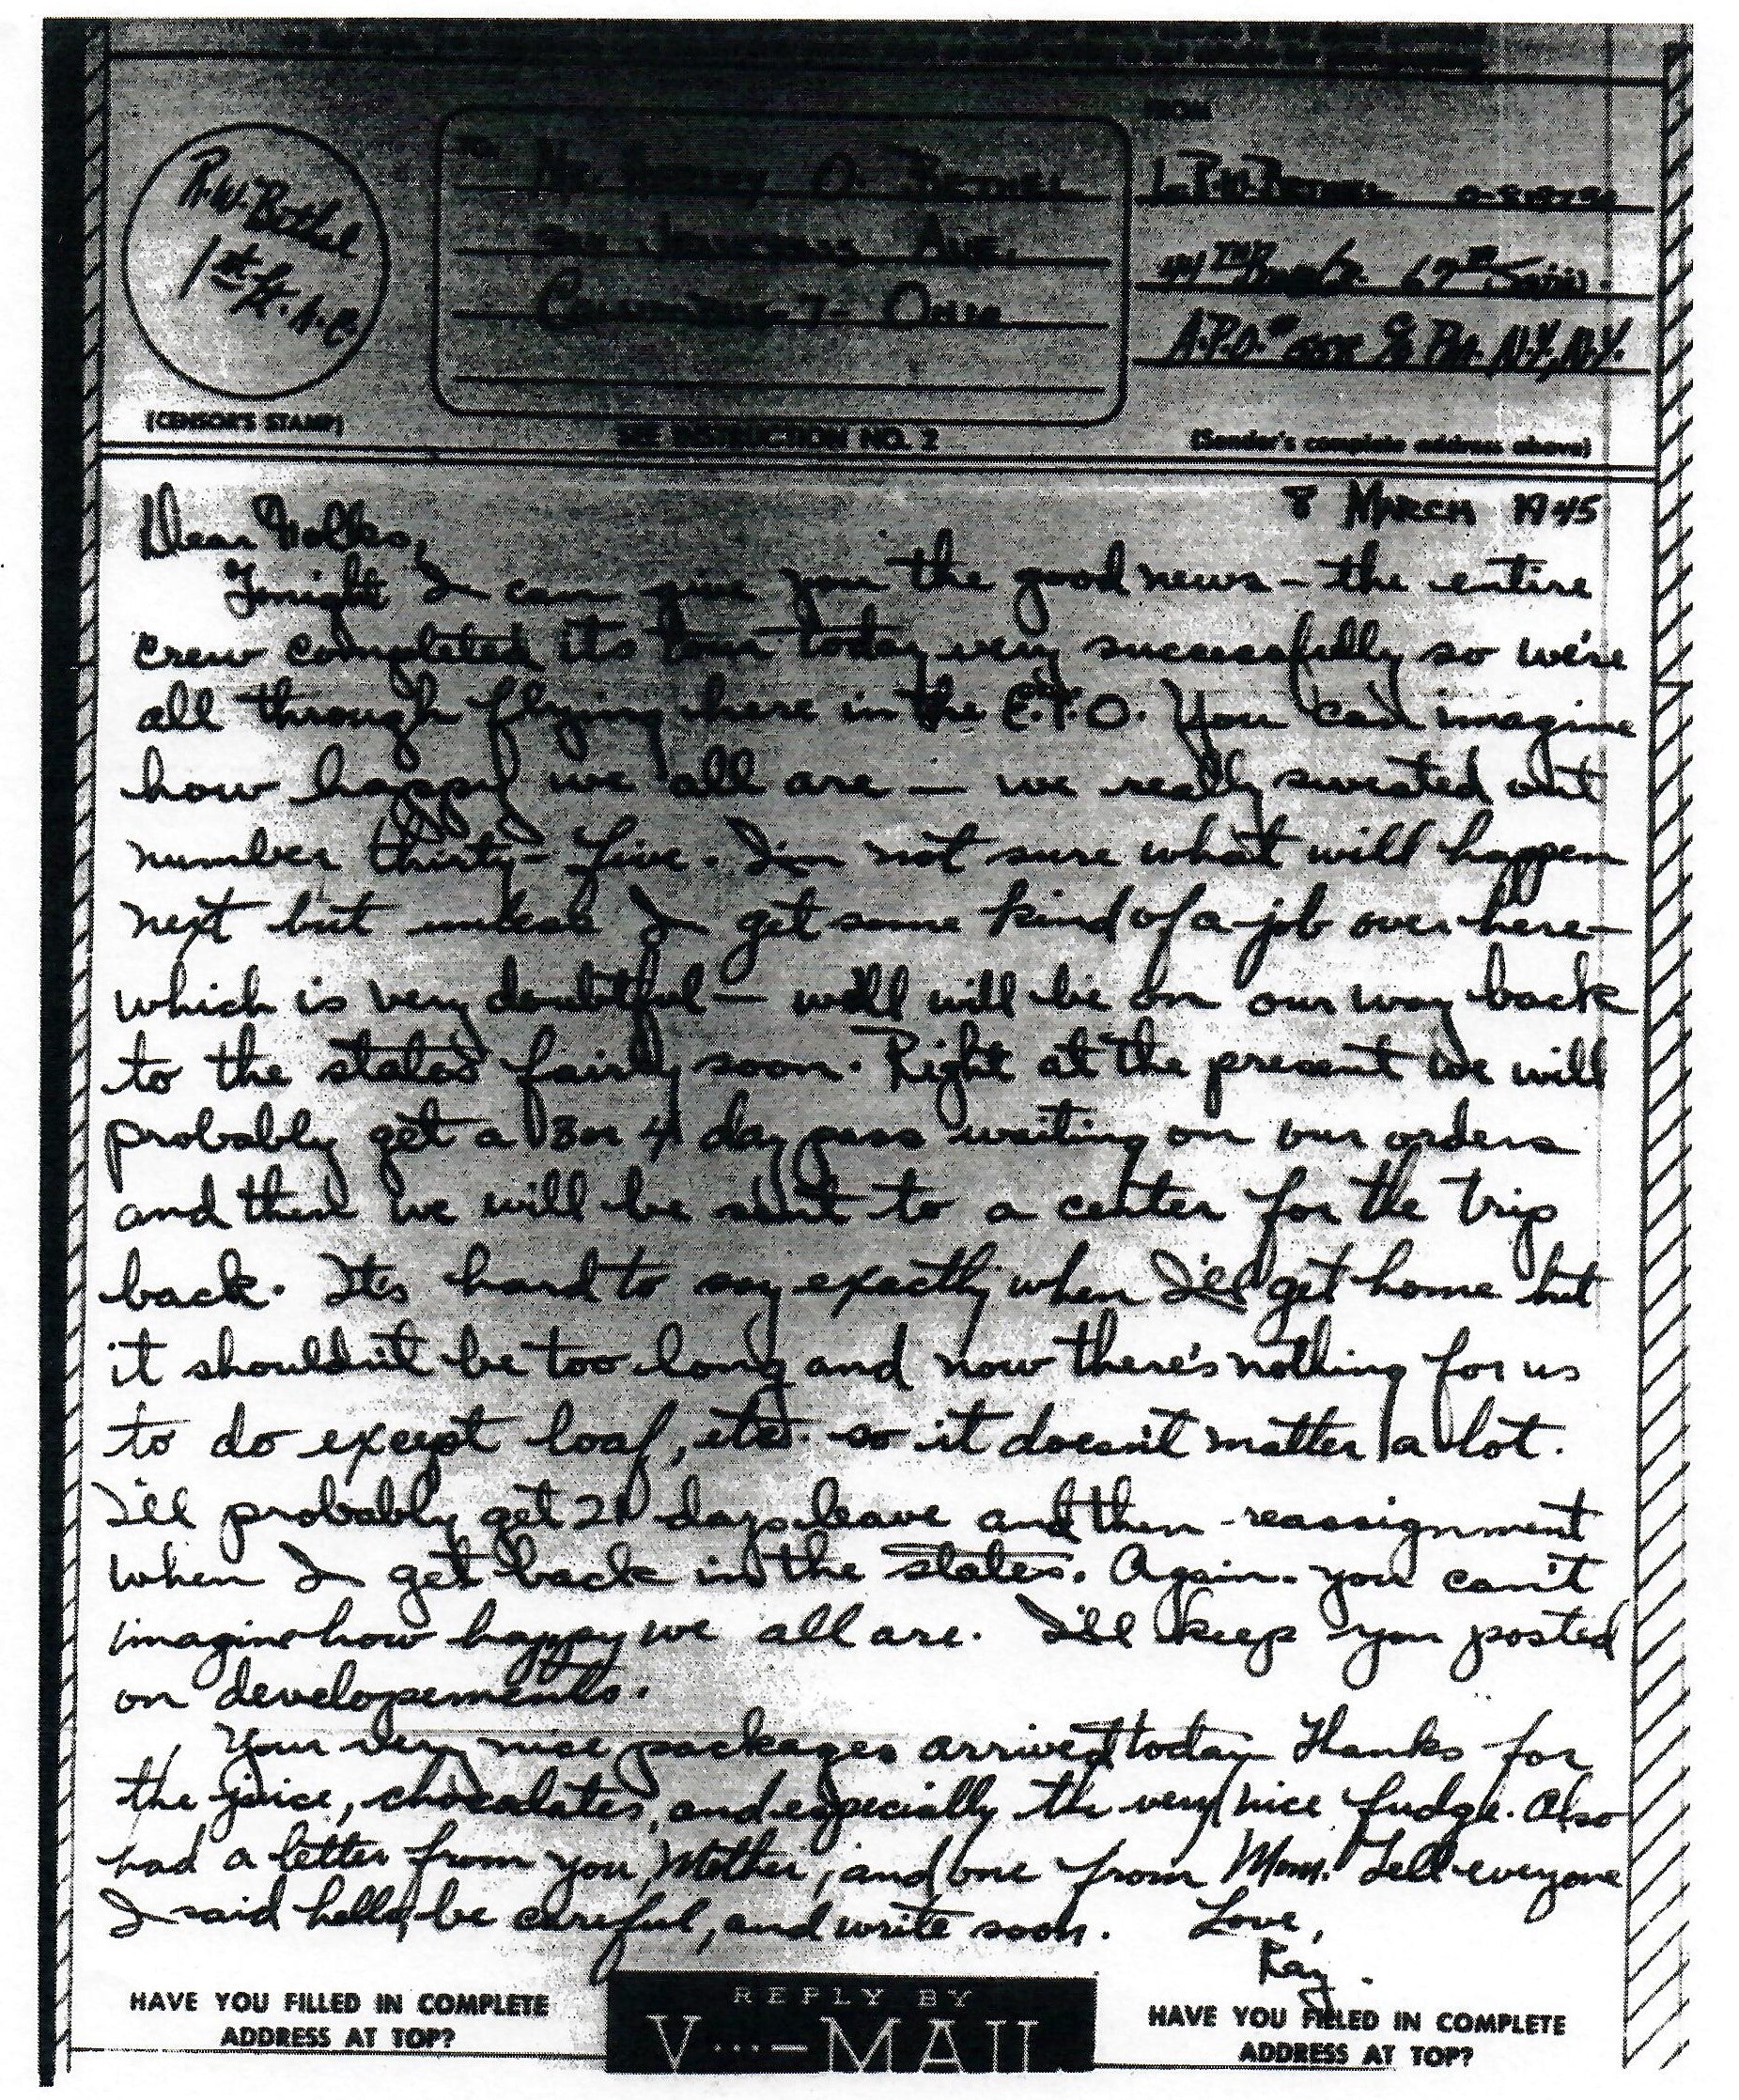 FROM
TO:
R.W. Bethel
1st Lt. A.C.
O. BETHEL
AVE.
COLUMBUS-7- OHIO
Lt. R.W. BETHEL
44TH Bomb Gr. 67th
A.P.O.# P.M. N.Y., N.Y.
(CENSOR'S STAMP)
SEE INSTRUCTION NO. 2
(Sender's complete address above)
8 MARCH 1945
Dear Folks,
Tonight I can give you the good news – the entire
crew completed its tour today very successfully so we're
all through flying here in the E.T.O. You can imagine
how happy we all are – we really sweated out
number thirty-five. I'm not sure what will happen
next but unless I get some kind of a job over here –
which is very doubtful – we'll will be on our way back
to the states fairly soon. Right at the present we will
probably get a 3 or 4 day pass waiting on our orders
and then we will be sent to a center for the trip
back. It's hard to say exactly when I'll get home but
it shouldn't be too long and now there's nothing for us
to do except loaf, etc. so it doesn't matter a lot.
I'll probably get 21 days leave and then reassignment
when I get back in the states. Again. you can't
imagine how happy we all are. I'll keep you posted
on developements.
Your very nice packages arrived today. Thanks for
the juice, chocolates, and especially the very nice fudge. Also
had a letter from you, Mother, and one from Mom. Tell everyone
I said hello, be careful, and write soon. Love,
Ray.
HAVE YOU FILLED IN COMPLETE
ADDRESS AT TOP?
REPLY BY
V...—MAIL
HAVE YOU FILLED IN COMPLETE
ADDRESS AT TOP?